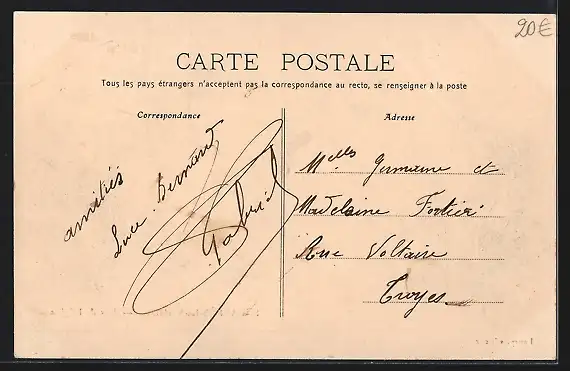 20€
CARTE POSTALE
Tous les pays étrangers n'acceptent pas la correspondance au recto, se renseigner à la poste
Correspondance
Adresse
amitiés
Luce. Bernard
Gabriel
Melles Germaine et
Madeleine Fortier
Rue Voltaire
Troyes